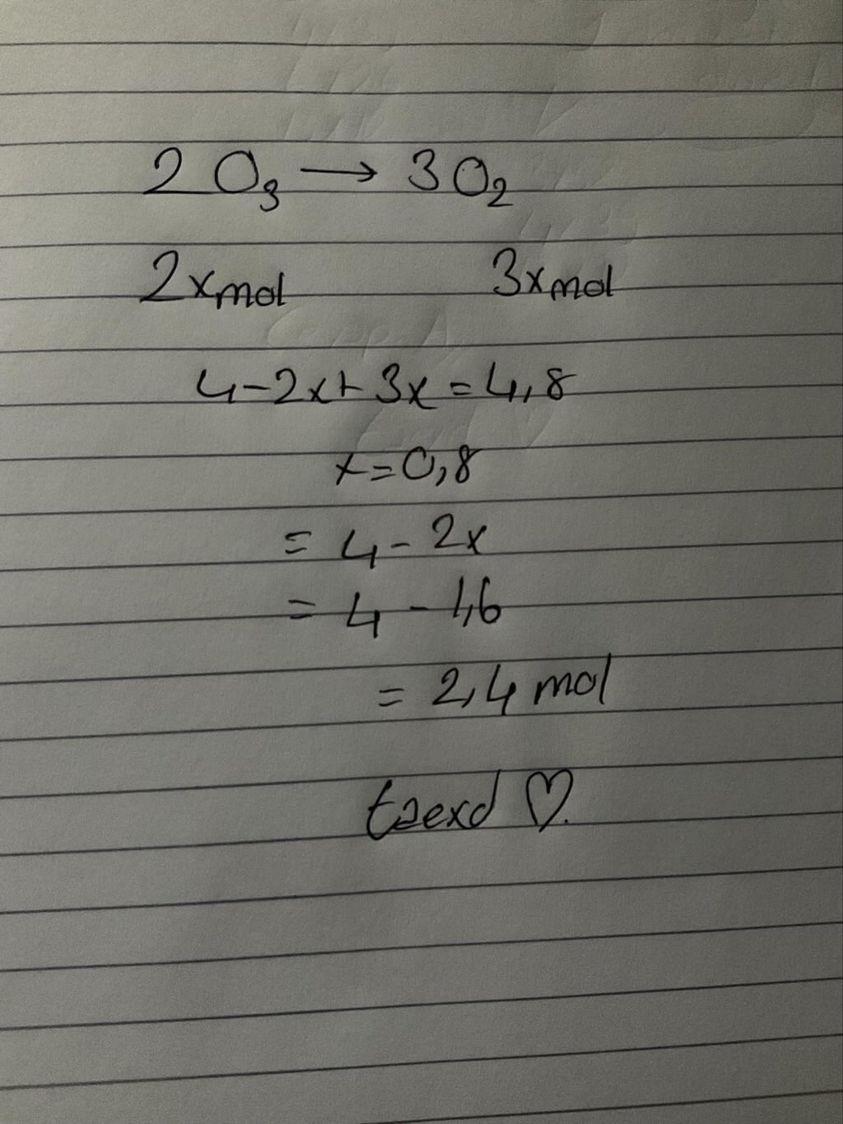 2 O₃ → 3 O₂
2x mol 3x mol
4-2x+3x=4,8
x=0,8
= 4 - 2x
= 4 - 1,6
= 2,4 mol